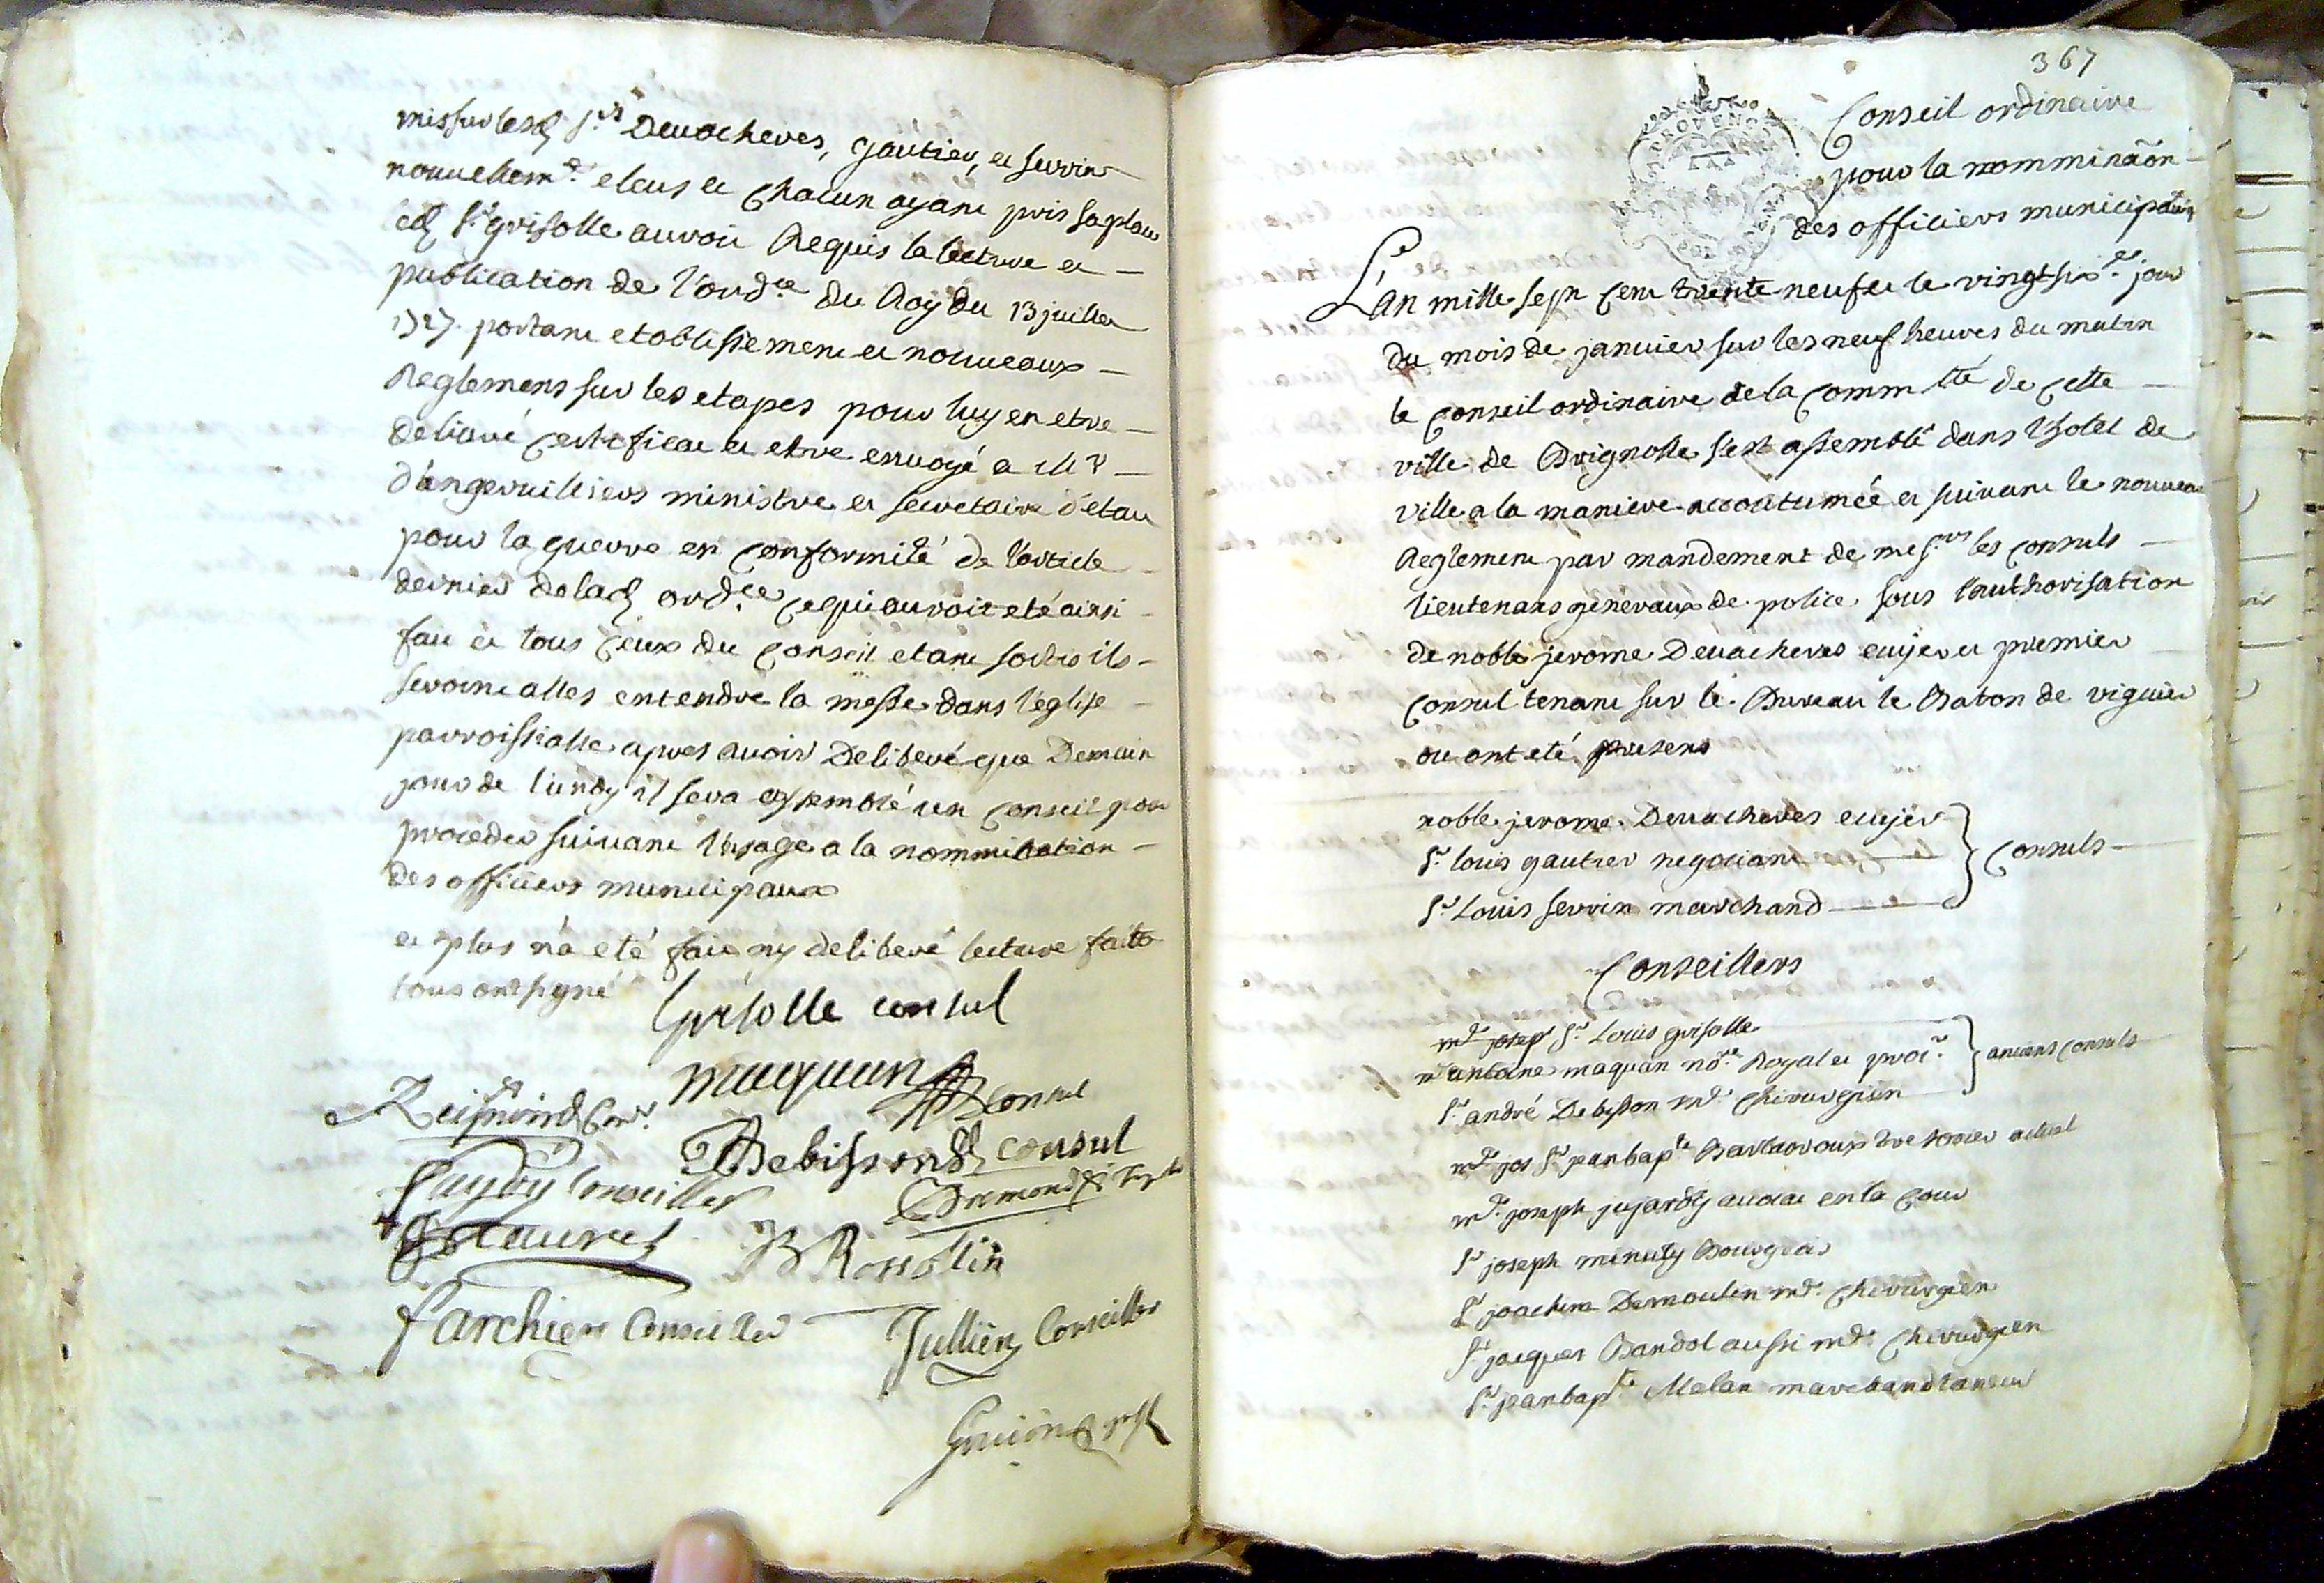 mis sur lesd srs Deuacheves, gautier, et serrin
nouuellemt eleus et chacun ayant pris sa place
led sr grisolle auroit Requis la lecture et
publication de l'ordce du Roy du 13 juillet
1727. portant etablissement et nouueaux
Reglemens sur les etapes pour luy en etre
deliuré certificat et etre enuoyé a Mr
d'angeruilliers ministre et secretaire d'etat
pour la guerre en conformité de l'article
dernier de lad ordce ce qui auroit eté ainsi
fait et tous ceux du conseil etant sortis ils
seroint alles entendre la messe dans l'eglise
parroissialle apres auoir Deliberé que Demain
jour de lundy il sera assemblé un conseil pour
proceder suiuant l'usage a la nommination
des officiers municipaux
et plus n'a eté fait ny deliberé lecture faitte
tous ont signé
Grisolle consul
maquan consul
Debisson consul
Conseiller
B Rossolin
farchier Conseiller
Jullien Conseiller
367
Conseil ordinaire
pour la nomminaon
des officiers municipaux
PROVENCE
L'an mille sept cent trente neuf et le vingt sixe jour
du mois de januier sur les neuf heures du matin
le conseil ordinaire de la commté de cette
ville de Brignolle s'est assemblé dans l'hotel de
ville a la maniere accoutumée et suiuant le nouueau
Reglement par mandement de messrs les consuls
lieutenans generaux de police, sous l'authorisation
de noble jerome Deuacheres ecuyer et premier
consul tenant sur le Bureau le Baton de viguier
ou ont eté presens
noble jerome Deuacheres ecuyer
sr louis gautier negotiant
sr Louis serrin marchand
consuls
Conseillers
me josep sr Louis grisolle
me antoine maquan nore Royal et procr
anciens consuls
sr andré Debisson me chirurgien
me jos sr jean bapte Barbaroux tresorier actuel
me joseph jujardy auocat en la cour
sr joseph minuty Bourgeois
sr joachim Demoulin me chirurgien
sr jacques Bandol aussi me chirurgien
sr jean bapte Melan marchand taneur